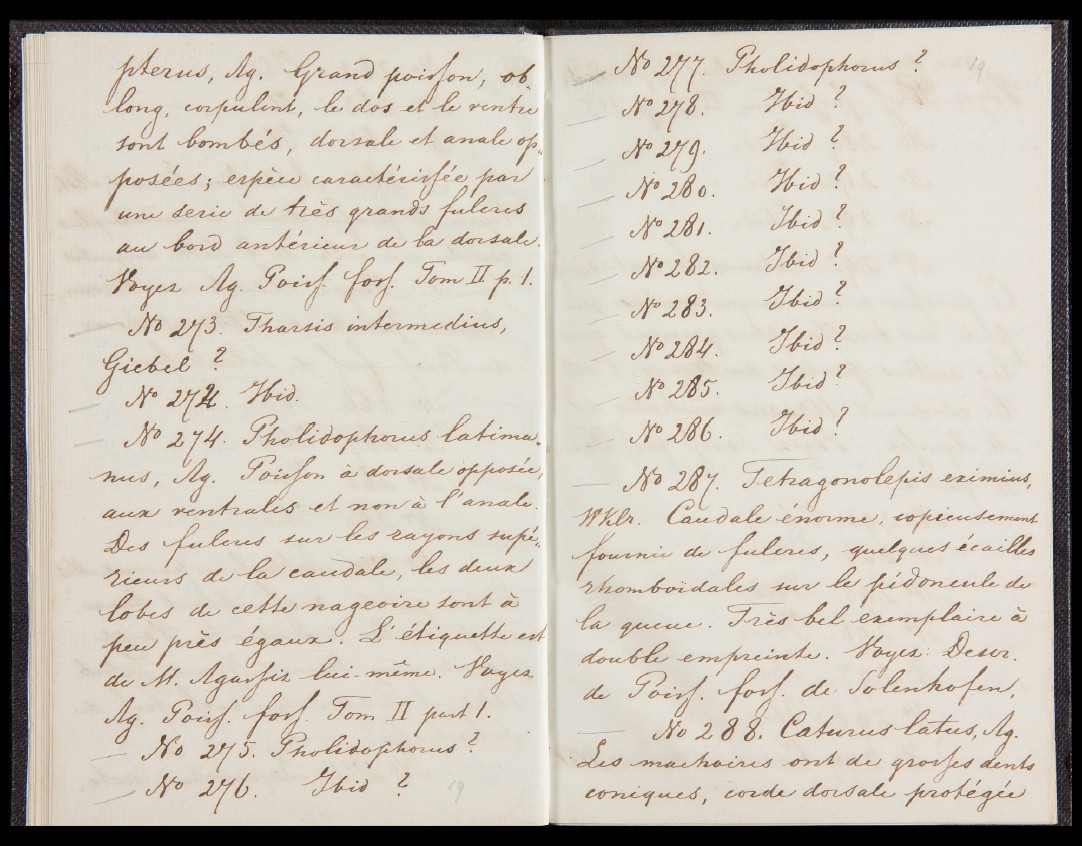 pterus, Ag. Grand poisson, ob„
long, corpulent, le dos et le ventre
sont bombés, dorsale et anale op„
posées; espèce caractérisée par
une serie de très grands fulcres
au bord antérieur de la dorsale.
Voyez Ag. Poiss. foss. Tom II p. 1.
— No 273. Tharsis intermedius,
Giebel ?
— No 274. Ibid.
— No 274. Pholidophorus latima„
nus, Ag. Poisson à dorsale opposée
aux ventrales et non à l'anale.
Des fulcres sur les rayons supé„
rieurs de la caudale, les deux
lobes de cette nageoire sont à
peu près égaux. L'étiquette est
de M. Agassiz lui-même. Voyez
Ag. Poiss. foss. Tom II part 1.
— No 275. Pholidophorus ?
— No 276. Ibid ?
19
19
— No 277. Pholidophorus ?
— No 278. Ibid ?
— No 279. Ibid ?
— No 280. Ibid ?
— No 281. Ibid ?
— No 282. Ibid ?
— No 283. Ibid ?
— No 284. Ibid ?
— No 285. Ibid ?
— No 286. Ibid ?
— No 287. Tetragonolepis eximius,
Caudale énorme, copieusement
fournie de fulcres, quelques écailles
rhomboïdales sur le pédoncule de
la queue. Très bel exemplaire à
double empreinte. Voyez: Descr.
de Poiss. foss. de Solenhofen,
— No 288. Caturus latus, Ag.
Les machoires ont de grosses dents
coniques, corde dorsale protégée